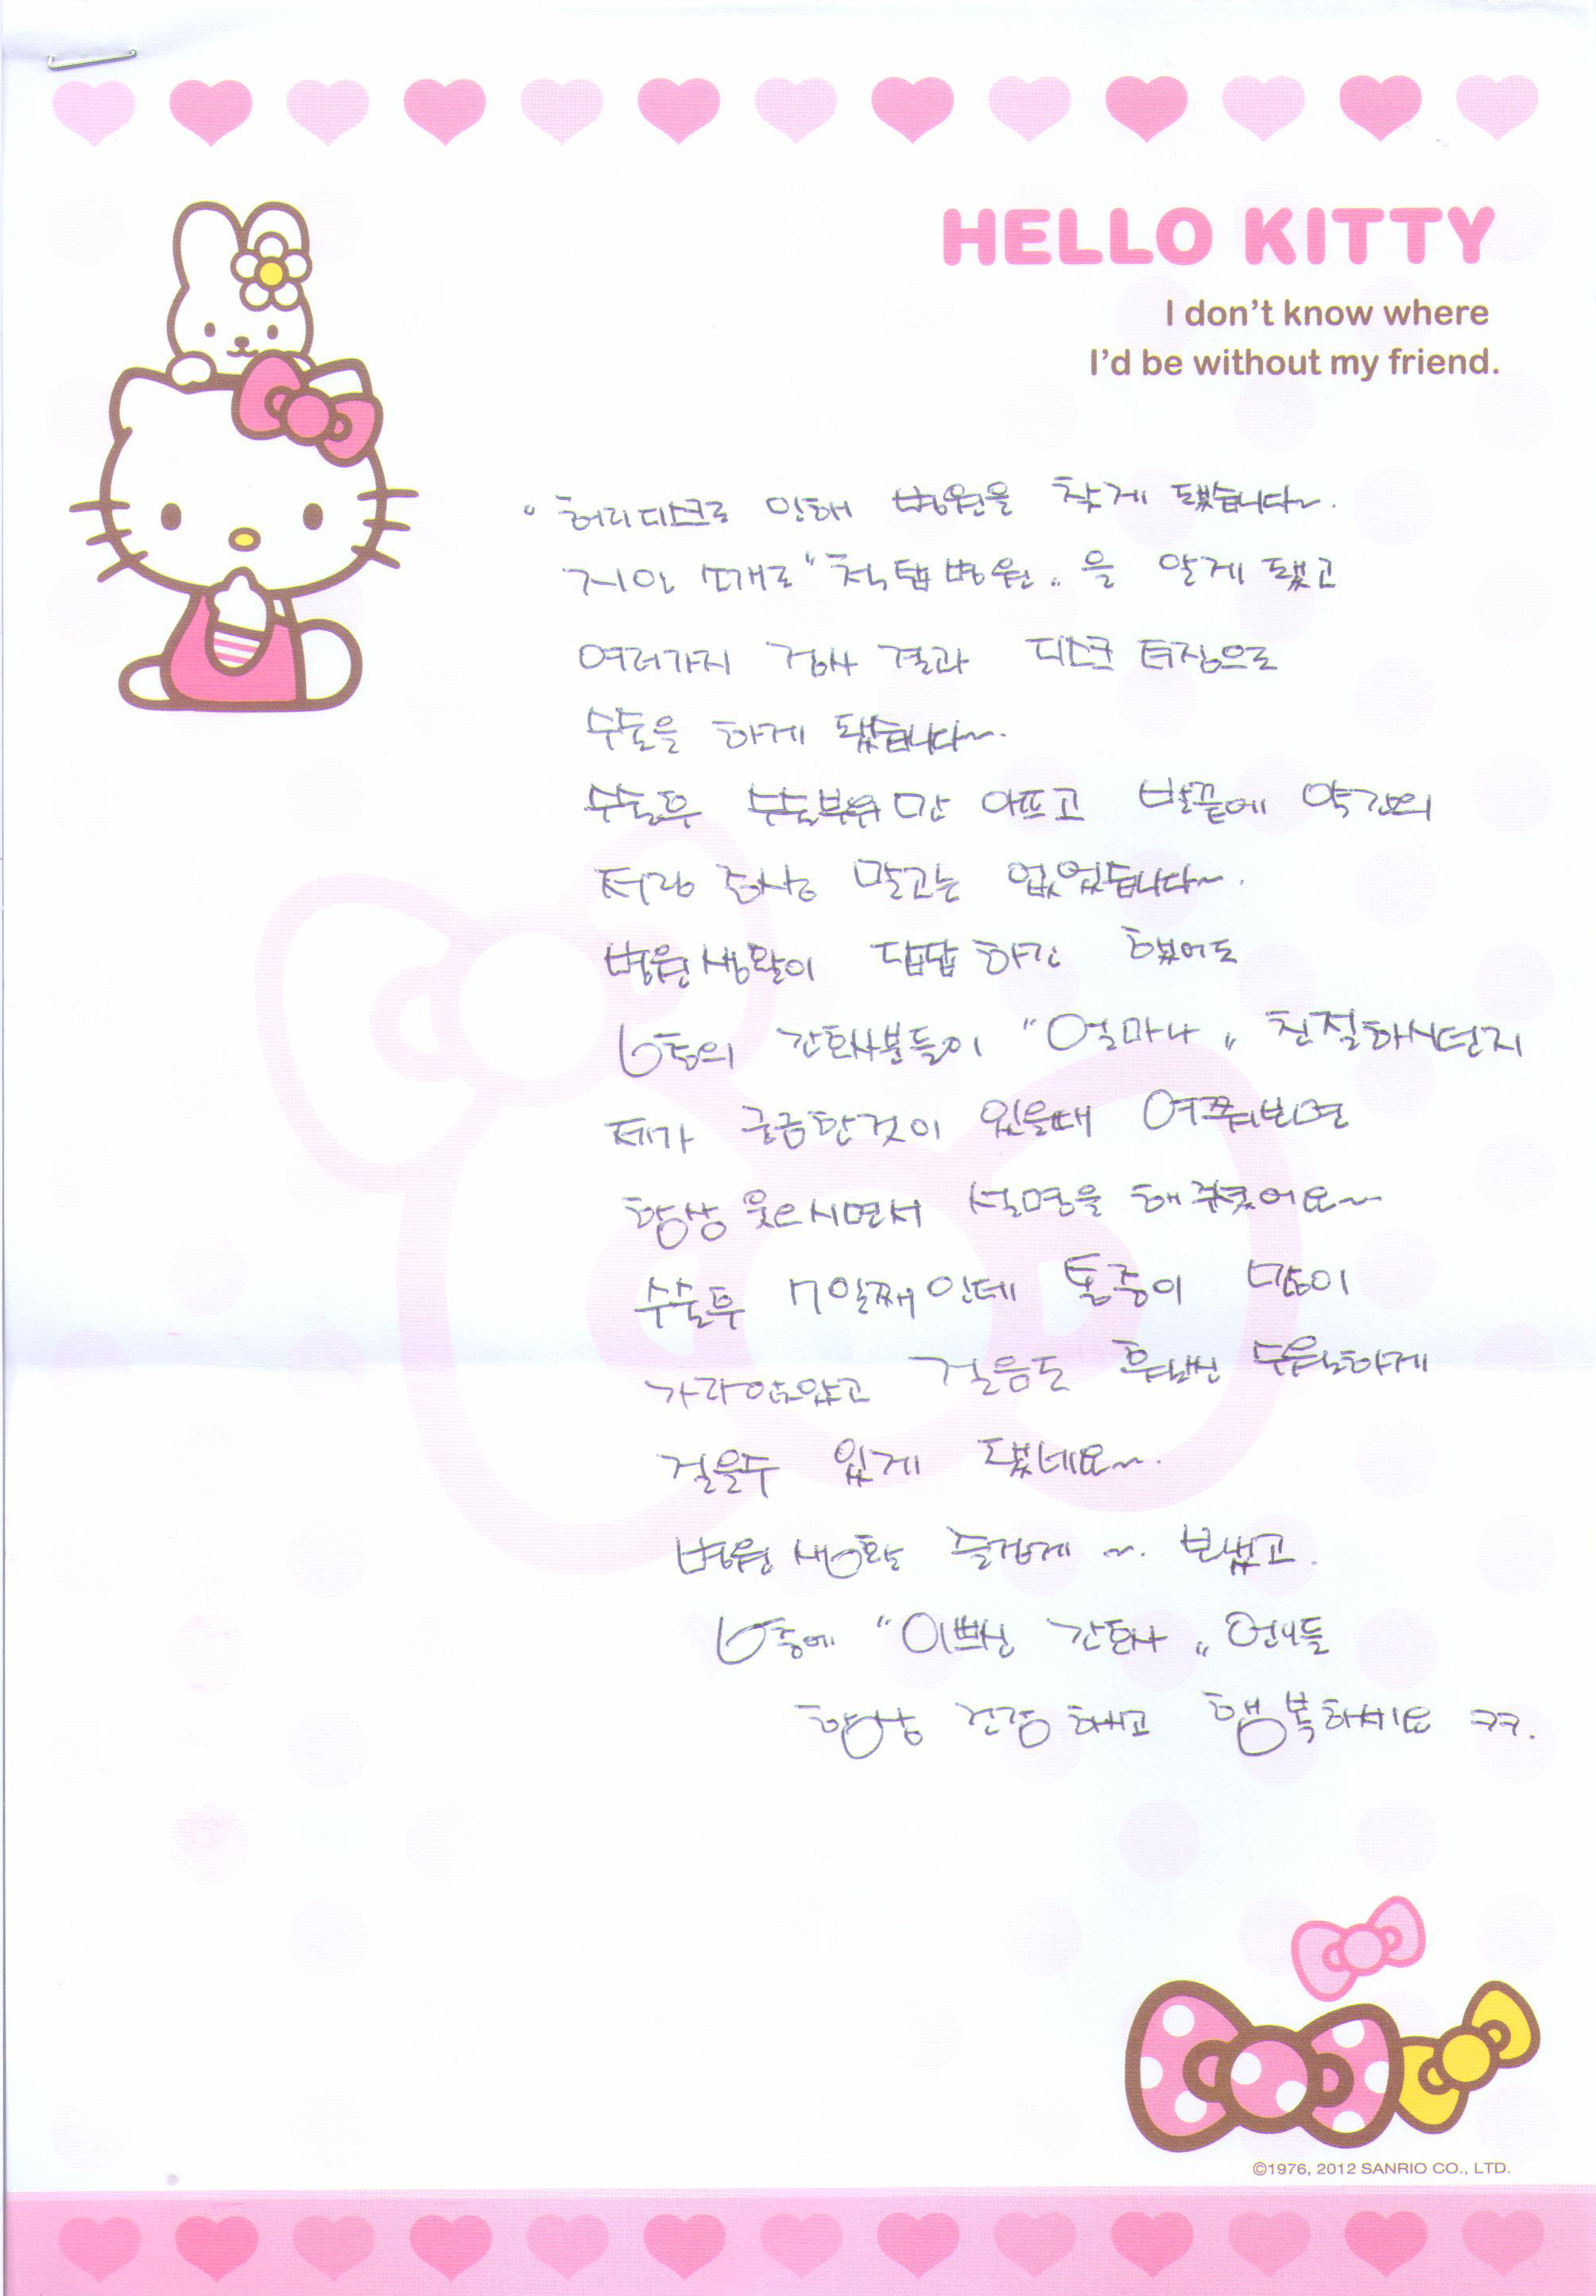 HELLO KITTY
I don't know where
I'd be without my friend.
허리디스크로 인해 병원을 찾게 됐습니다~.
지인 소개로 "척탑병원"을 알게 됐고
여러가지 검사 결과 디스크 터짐으로
수술을 하게 됐습니다~.
수술후 수술부위만 아프고 발끝에 약간의
저림 증상 말고는 없었습니다~.
병원생활이 답답하긴 했어도
6층의 간호사분들이 "얼마나" 친절하시던지
제가 궁금한것이 있을때 여쭤보면
항상 웃으시면서 설명을 해주셨어요~
수술후 7일째인데 통증이 많이
가라앉았고 걸음도 훨씬 수월하게
걸을수 있게 됐네요~.
병원생활 즐겁게~. 보냈고.
6층에 "이쁘신 간호사" 언니들
항상 건강하시고 행복하세요 ㅋㅋ.
©1976, 2012 SANRIO CO., LTD.